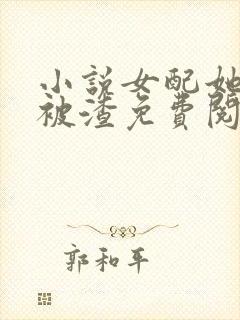 小說女配她
被渣免費閱
郭和平